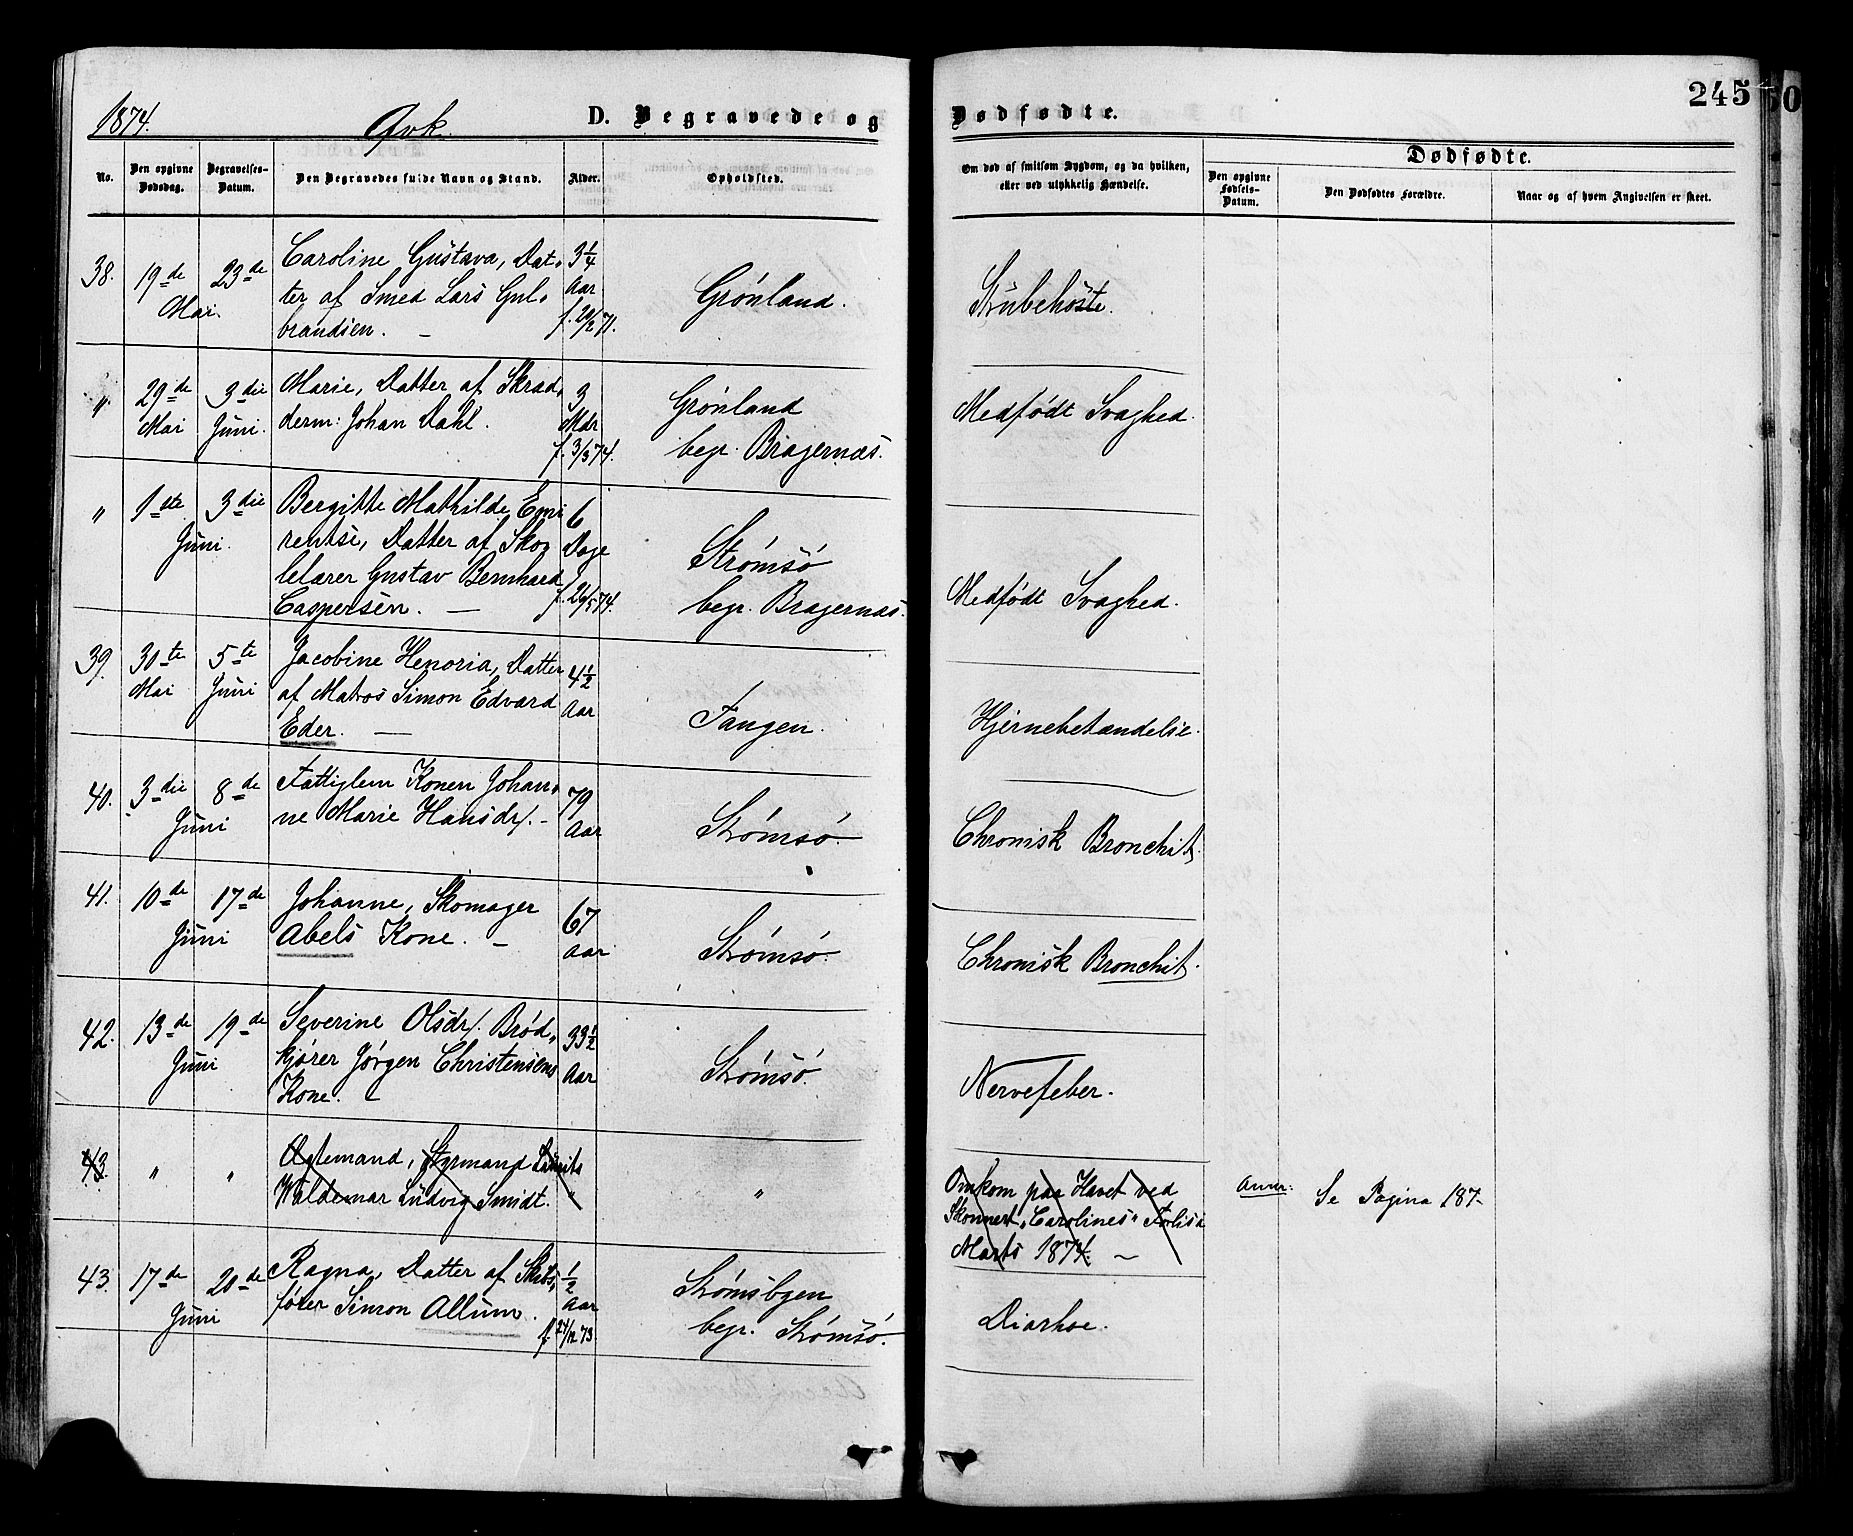 1874.
Qvk.
D. Begravede og
Dødfødte.
245
No.
Den opgivne
Dødsdag.
Begravelses-
Datum.
Den Begravedes fulde Navn og Stand.
Alder.
Opholdsted.
Om død af smitsom Sygdom, og da hvilken,
eller ved ulykkelig Hændelse.
Dødfødte.
Den opgivne
Fødsels-
Datum.
Den Dødfødtes Forældre.
Naar og af hvem Angivelsen er skeet.
38.
19de
23de
Mai.
Caroline Gustava, Dat-
ter af Smed Lars Gul-
brandsen. —
3 1/4
Aar
f. 20/2 71.
Grønland.
Strubehoste.
"
29de
Mai
3die
Juni.
Marie, Datter af Skræd-
derm: Johan Dahl.
3
Mdr
f. 3/3 74.
Grønland
begr. Bragernæs.
Medfødt Svaghed.
"
1ste
3die
Juni.
Bergitte Mathilde Eme-
rentse, Datter af Sko-
lelærer Gustav Bernhard
Caspersen. —
6
Dage
f. 26/5 74.
Strømsö
begr. Bragernæs.
Medfødt Svaghed.
39.
30te
Mai
5te
Juni
Jacobine Henoria, Datter
af Matros Simon Edvard
Eder. —
4 1/2
Aar
Tangen.
Hjernebetændelse.
40.
3die
8de
Juni
Fattiglem Konen Johan-
ne Marie Hansdr. -
79
Aar
Strømsö.
Chronisk Bronchit.
41.
10de
17de
Juni
Johanne, Skomager
Abels Kone. -
67
Aar
Strømsö.
Chronisk Bronchit.
42.
13de
19de
Juni
Severine Olsdr. Brød-
kjører Jörgen Christensens
Kone.
33 1/2
Aar
Strømsö.
Nervefeber.
43.
"
"
Ægtemand, Styrmand Lauits
Waldemar Ludvig Smidt.
"
"
Omkom paa Havet ved
Skonnert "Carolines" Forlis i
Marts 1874. -
Anm:
Se Pagina 187-
43.
17de
20de
Juni
Ragna, Datter af Skibs-
fører Simon Allum.
1/2
Aar
f. 24/12 73.
Strømsbyen
begr. Strømsö.
Diarhoe.